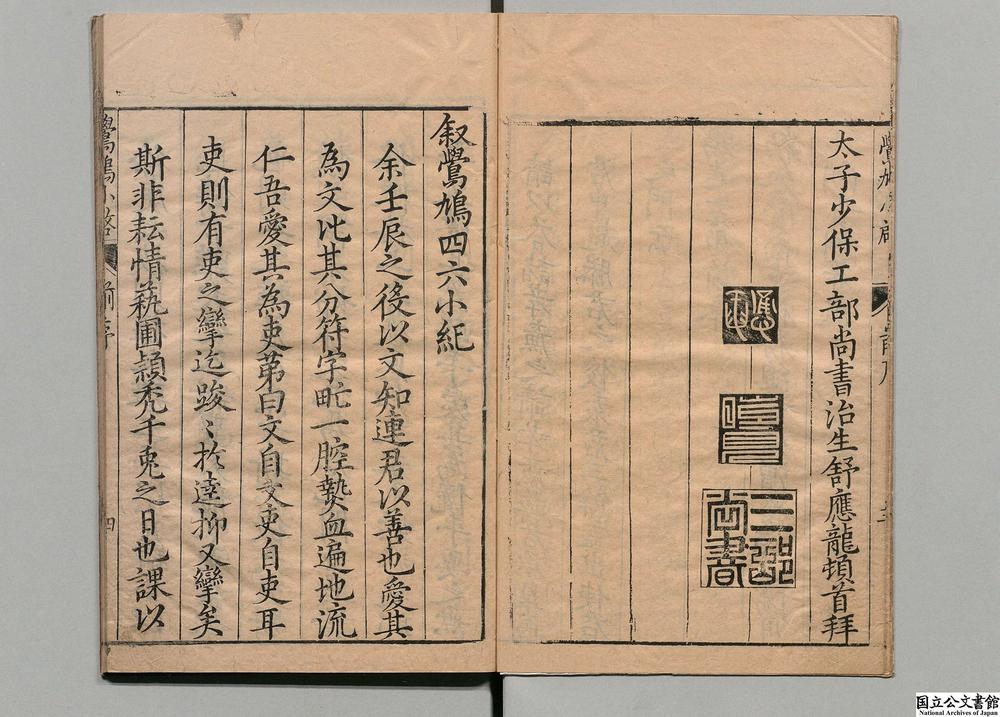 太子少保工部尚書治生舒應龍頓首拜
三部
尚書
叙鷽鳩四六小紀
余壬辰之役以文知連君以善也愛其
為文比其分符字甿一腔𤍠血遍地流
仁吾愛其為吏第曰文自文吏自吏耳
吏則有吏之攣迄踆〻於逵抑又攣矣
斯非耘情蓺圃頴禿千兎之日也課以
四
国立公文書館
National Archives of Japan